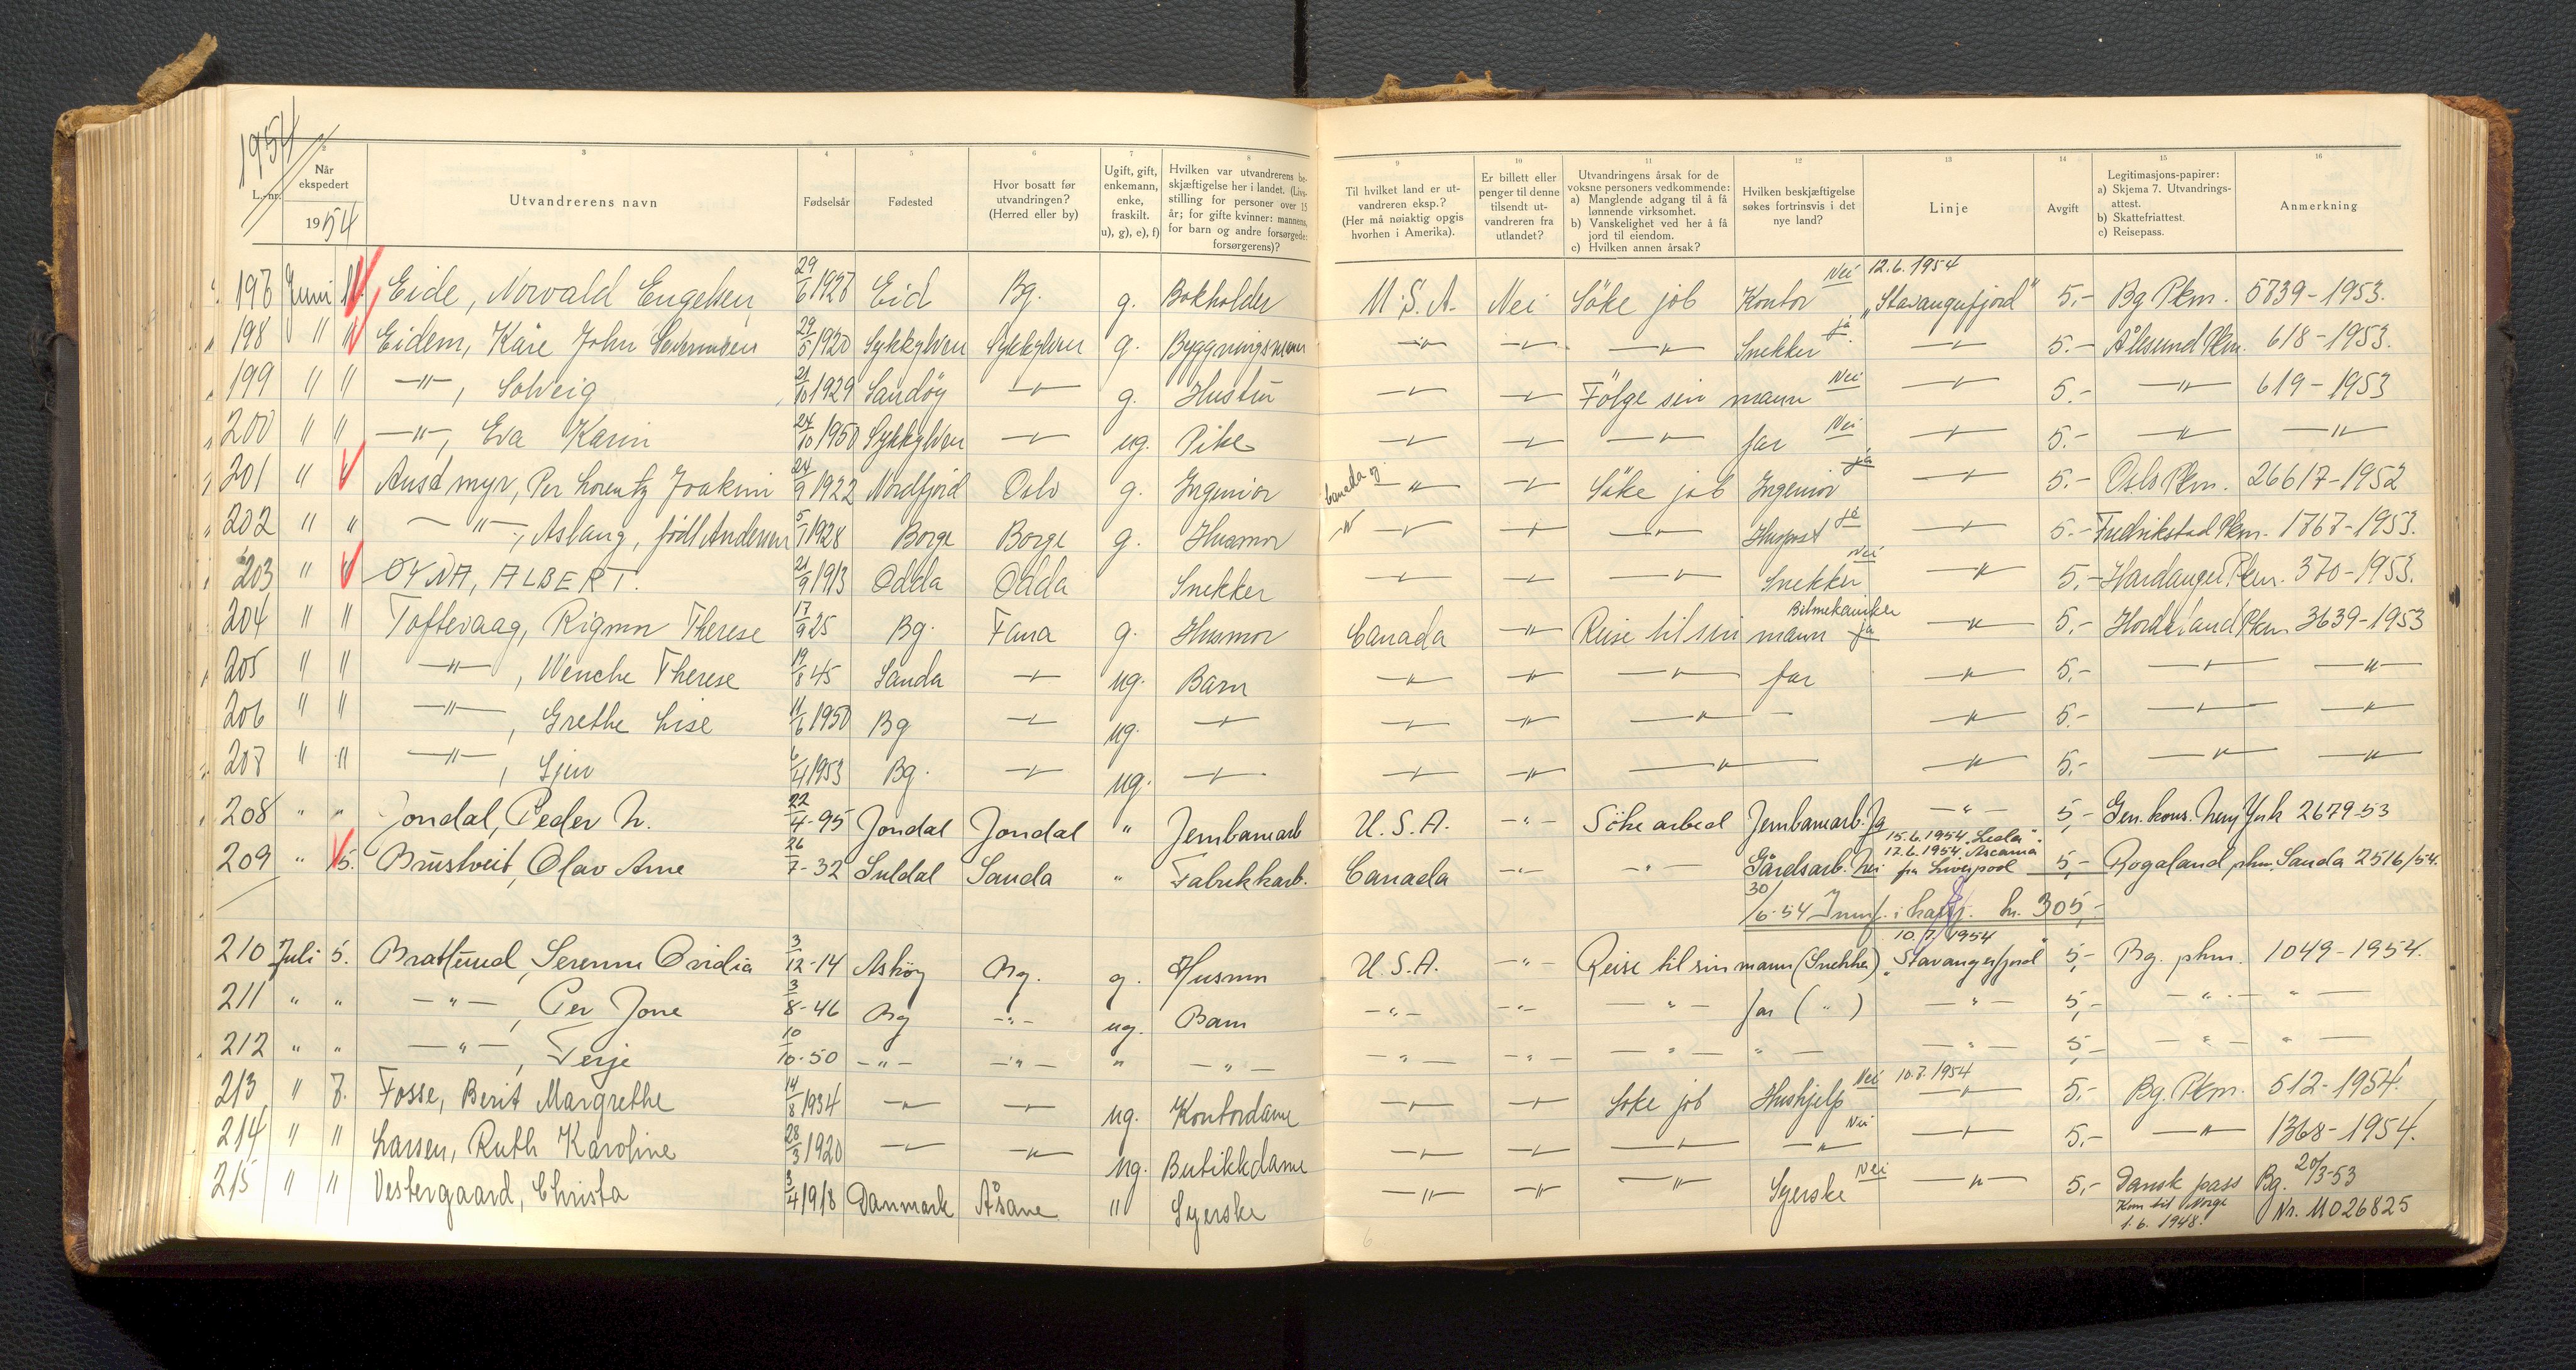 1954
L.-nr.
2
Når
ekspedert
1954
3
Utvandrerens navn
4
Fødselsår
5
Fødested
6
Hvor bosatt før
utvandringen?
(Herred eller by)
7
Ugift, gift,
enkemann,
enke,
fraskilt.
u), g), e), f)
8
Hvilken var utvandrerens be-
skjæftigelse her i landet. (Livs-
stilling for personer over 15
år; for gifte kvinner: mannens,
for barn og andre forsørgede:
forsørgerens)?
9
Til hvilket land er ut-
vandreren eksp.?
(Her må nøiaktig opgis
hvorhen i Amerika).
10
Er billett eller
penger til denne
tilsendt ut-
vandreren fra
utlandet?
11
Utvandringens årsak for de
voksne personers vedkommende:
a) Manglende adgang til å få
lønnende virksomhet.
b) Vanskelighet ved her å få
jord til eiendom.
c) Hvilken annen årsak?
12
Hvilken beskjæftigelse
søkes fortrinsvis i det
nye land?
13
Linje
14
Avgift
15
Legitimasjons-papirer:
a) Skjema 7. Utvandrings-
attest.
b) Skattefriattest.
c) Reisepass.
16
Anmerkning
197 Juni 11. Eide, Norvald Engelsen 29/6 1927 Eid Bg. g. Bokholder U.S.A. Nei Söke job Kontor Nei 12.6.1954 "Stavangerfjord" 5,- Bg Pkm. 5739-1953.
198 " " Eidem, Kåre John Severinsen 29/5 1920 Sykkylven Sykkylven g. Byggningsmann -"- -"- -"- Snekker ja -"- 5.- Ålesund Pkm. 618-1953.
199 " " -"-, Solveig 21/10 1929 Sandöy -"- g. Hustru -"- -"- Fölge sin mann Nei -"- 5.- -"- 619-1953
200 " " -"-, Eva Karin 24/10 1950 Sykkylven -"- ug. Pike -"- -"- -"- far Nei -"- 5.- -"- -"-
201 " " Ausdmyr, Per Lorentz Joakim 24/9 1922 Nordfjord Oslo g. Ingeniör Canada og -"- -"- Söke job Ingeniör ja -"- 5.- Oslo Pkm. 26617-1952
202 " " -"-, Aslaug, födt Andersen 5/7 1928 Borge Borge g. Husmor -"- -"- -"- -"- Huspost ja -"- 5.- Fredrikstad Pkm. 1767-1953.
203 " " OYNA, ALBERT. 21/9 1913 Odda Odda Snekker -"- -"- -"- Snekker Nei -"- 5,- Hardanger Pkm. 370-1953.
204 " " Toftevaag, Rigmor Therese 17/9 25 Bg. Fana g. Husmor Canada -"- Reise til sin mann Bilmekaniker ja -"- 5,- Hordaland Pkm. 3639-1953
205 " " -"-, Wenche Therese 19/8 45 Sauda -"- ug. Barn -"- -"- -"- far -"- 5,- -"- -"-
206 " " -"-, Grethe Lise 11/6 1950 Bg -"- ug. -"- -"- -"- -"- - -"- 5.- -"- -"-
207 " " -"-, Sjur 6/4 1953 Bg. -"- ug. -"- -"- -"- -"- -"- 5,- -"- -"-
208 " " Jondal, Peder N. 22/4-95 Jondal Jondal " Jernbanearb U.S.A. -"- Söke arbeid Jernbanearb. Ja -"- 5,- Gen.kons. New York 2679-53
15.6.1954 "Leda".
209 " 15. Brustveit, Olav Arne 26/7-32 Suldal Sauda " Fabrikkarb. Canada -"- -"- Gårdsarb. Nei 17.6.1954 Ascania fra Liverpool 5,- Rogaland pkm, Sauda 2516/54.
30/6-54 Innf. i kassj. kr. 305,-
210 Juli 5. Brattlund, Serenne Ovidia 3/12-14 Asköy Bg. g. Husmor U.S.A. -"- Reise til sin mann (Snekker) 10.7.1954 "Stavangerfjord" 5,- Bg. pkm. 1049-1954.
211 " " -"-, Per Jone 3/8-46 Bg -"- ug. Barn -"- -"- -"- far ( " ) -"- 5,- -"- -"-
212 " " -"-, Terje 10/10-50 -"- -"- " -"- -"- -"- -"- -"- -"- 5,- -"- -"-
213 " 7. Fosse, Berit Margrethe 14/8 1934 -"- -"- ug. Kontordame -"- -"- Söke job Hushjelp Nei 10.7.1954 -"- 5,- Bg. Pkm. 512-1954.
214 " " Larsen, Ruth Karoline 28/3 1920 -"- -"- ug. Butikkdame -"- -"- -"- -"- Nei -"- 5,- -"- 1368-1954.
215 " " Vestergaard, Christa 3/4 1918 Danmark Åsane " Syerske -"- -"- -"- Syerske Nei -"- 5,- Dansk pass Bg. 20/3-53
Kom til Norge
1.6.1948. Nr. 11026825